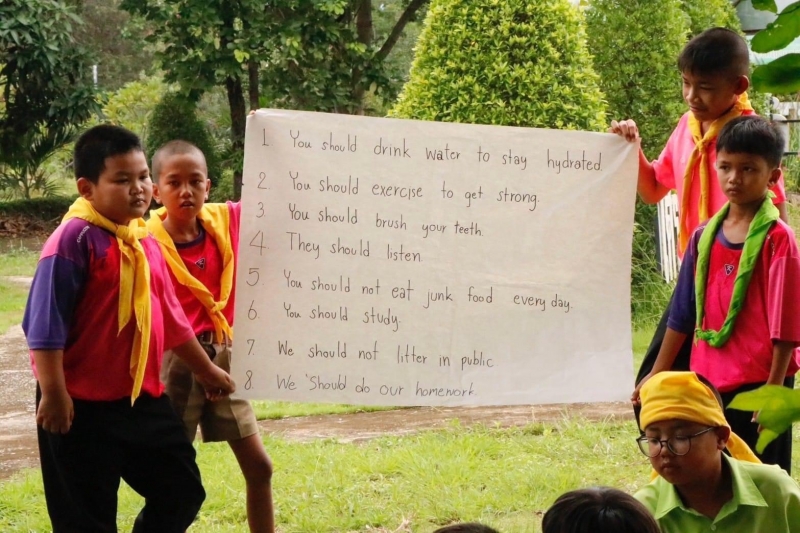 1 You should drink water to stay hydrated.
2. You should exercise to get strong.
3 You should brush your teeth.
4 They should listen
5 You should not eat junk food every day.
6. You should study.
7. We should not litter in public
8. We should do our homework.